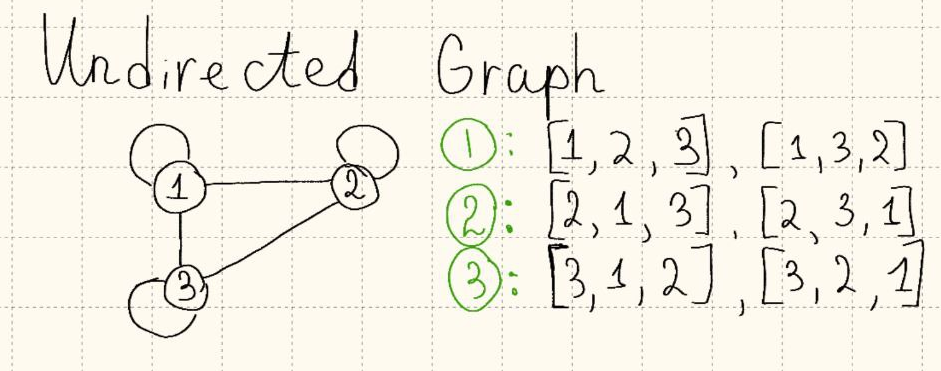 Undirected Graph
1: [1, 2, 3], [1, 3, 2]
2: [2, 1, 3], [2, 3, 1]
3: [3, 1, 2], [3, 2, 1]
1
2
3